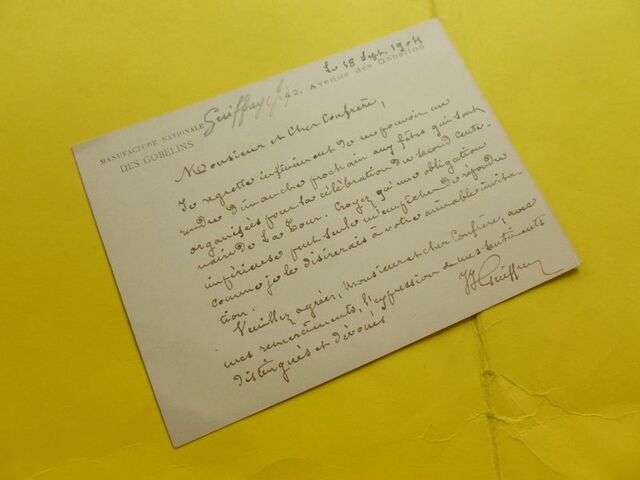 Le 18 Sept. 1904
MANUFACTURE NATIONALE
DES GOBELINS
Guiffrey
42, Avenue des Gobelins
Monsieur et Cher Confrère,
Je regrette infiniment de ne pouvoir me
rendre Dimanche prochain aux fêtes qui sont
organisées pour la célébration du second cente-
naire de La Tour. Croyez qu'une obligation
impérieuse peut seule m'empêcher de répondre
comme je le désirerais à votre aimable invita-
tion.
Veuillez agréer, Monsieur et cher Confrère, avec
mes remerciements, l'expression de mes sentiments
distingués et dévoués
JJ Guiffrey